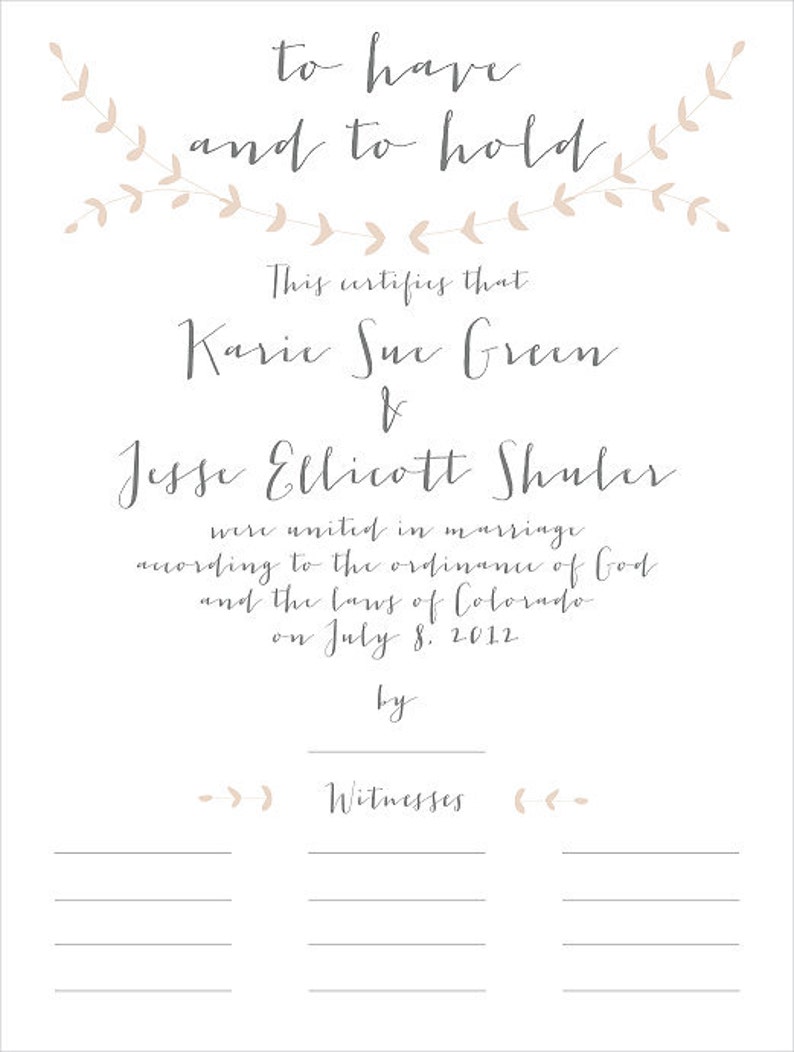 to have
and to hold
This certifies that
Karie Sue Green
&
Jesse Ellicott Shuler
were united in marriage
according to the ordinance of God
and the laws of Colorado
on July 8, 2012
by
Witnesses